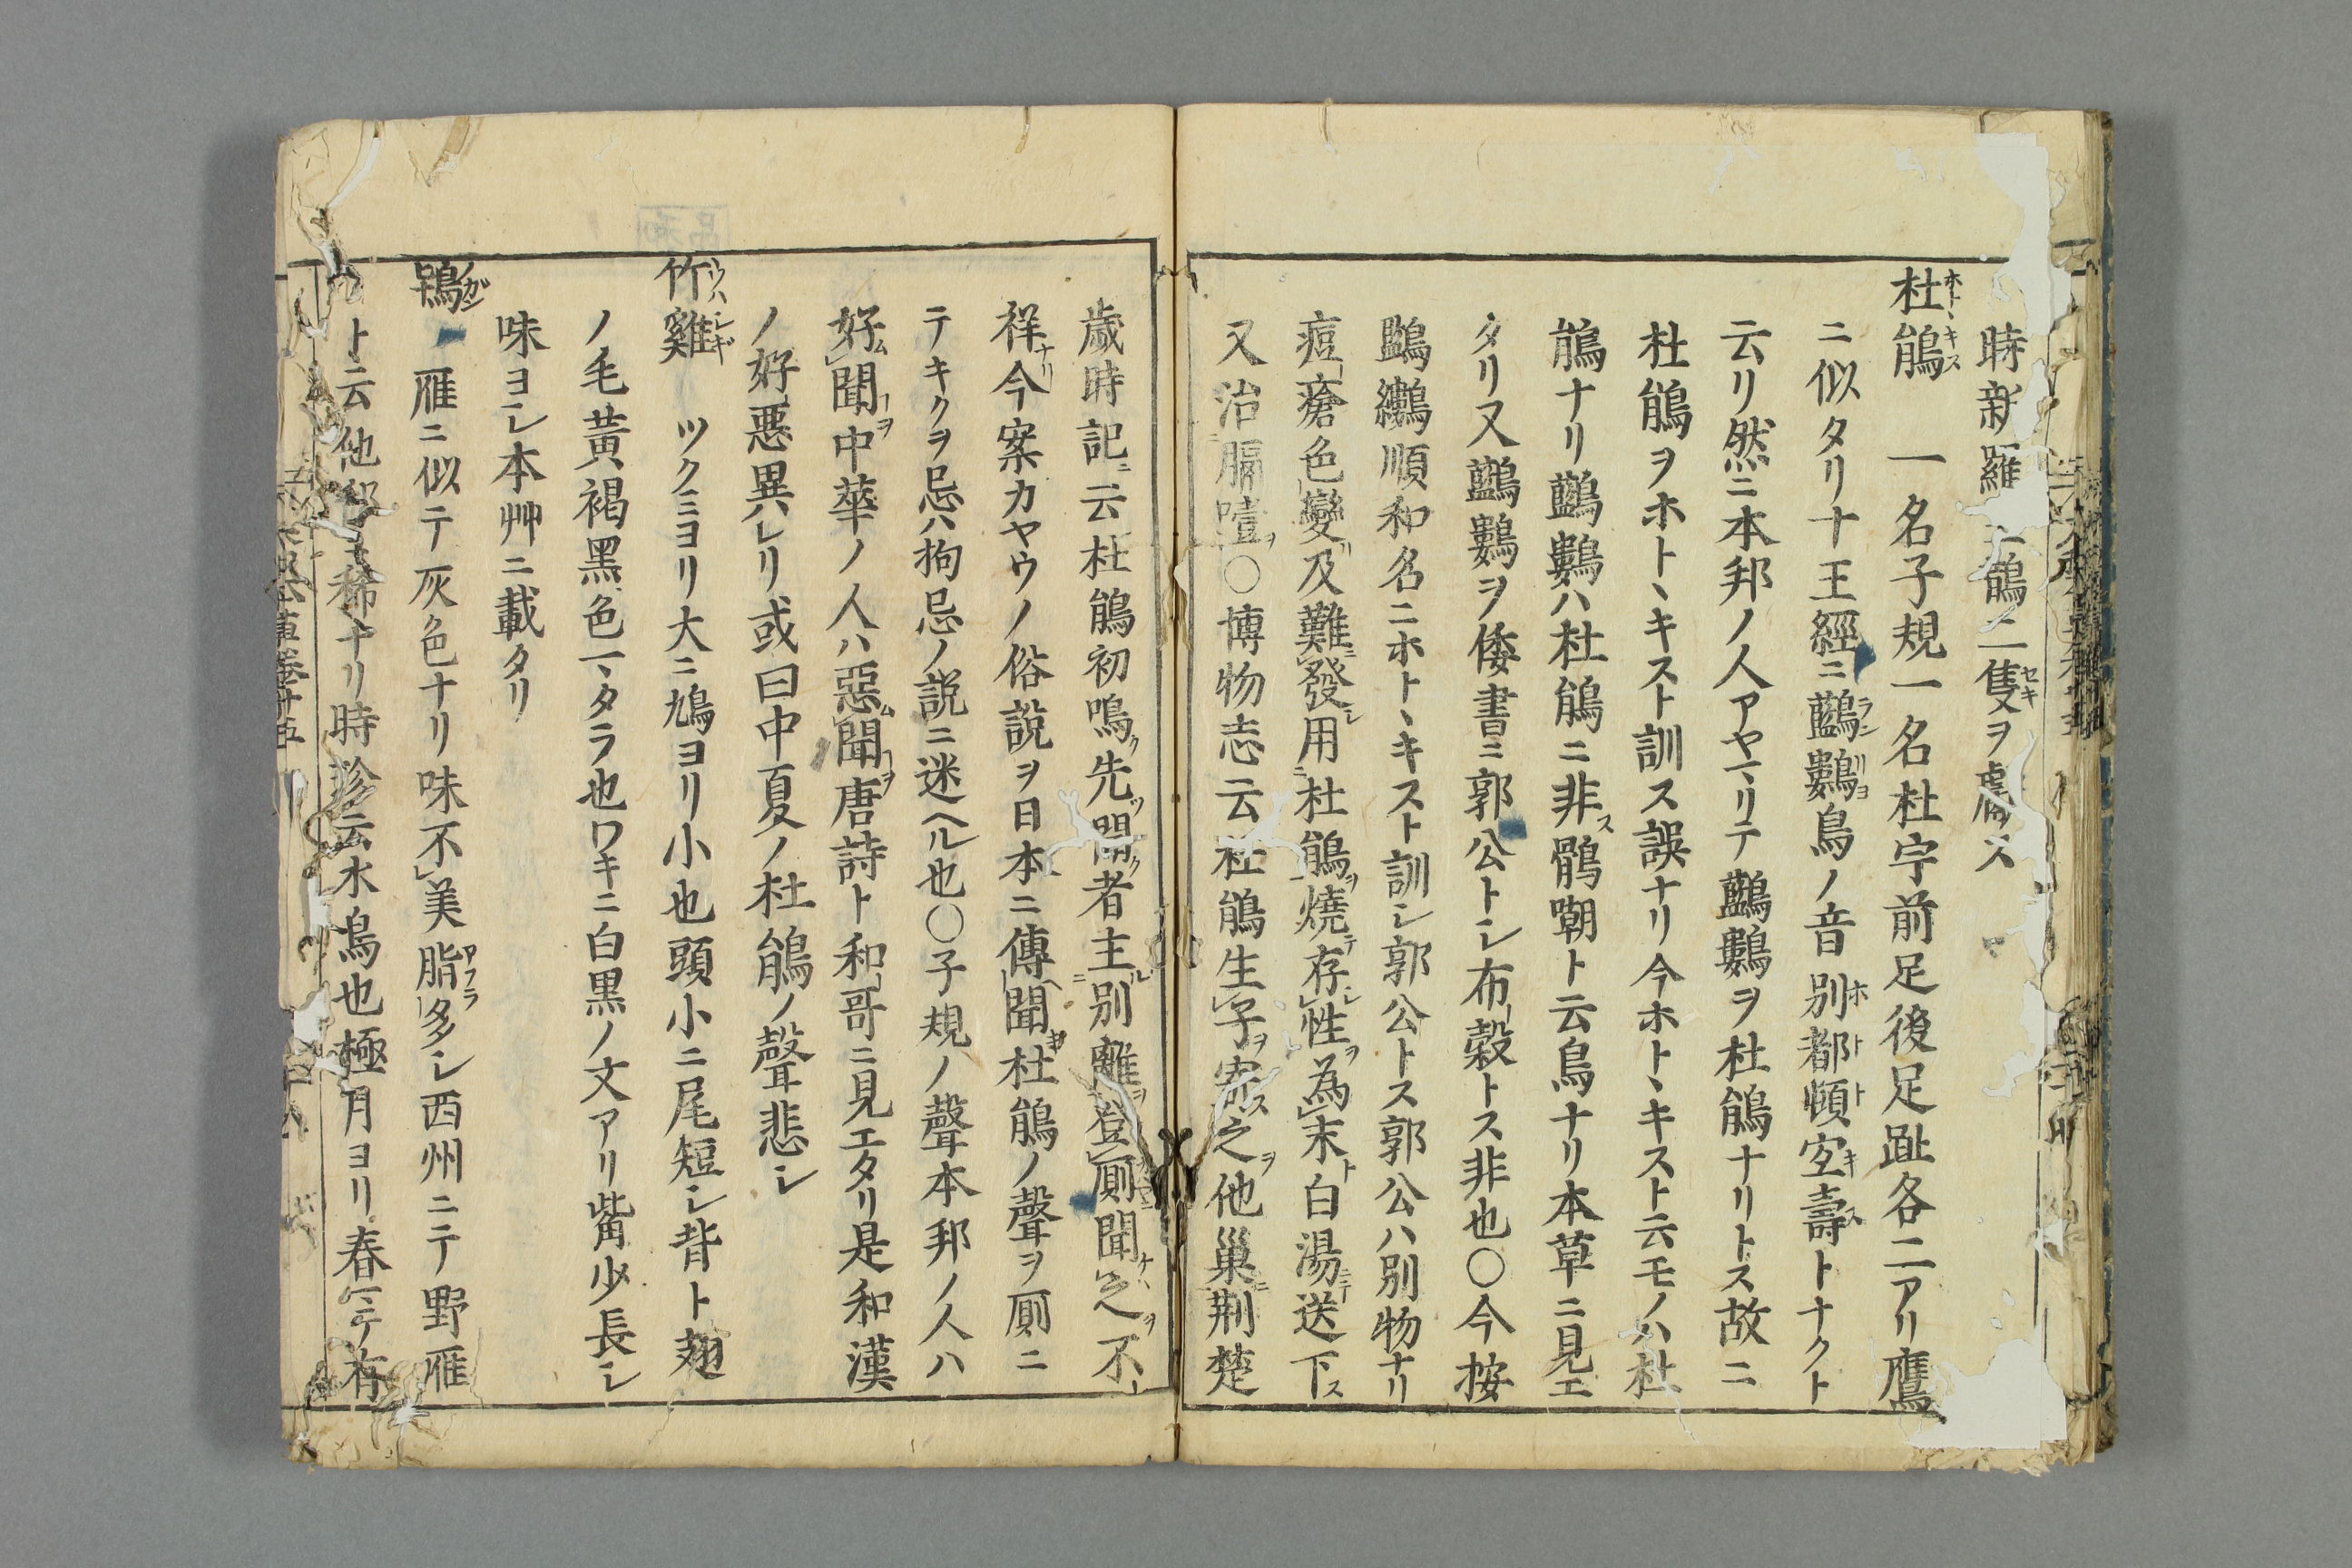 時新羅鵲二隻ヲ處ス
杜鵑 一名子規一名杜宇前足後足趾各二アリ鷹
ニ似タリ十王經ニ鸛鷜鳥ノ音別都頓宜壽トナクト
云リ然ニ本邦ノ人アヤマリテ鸛鷜ヲ杜鵑ナリトス故ニ
杜鵑ヲホトヽキスト訓ス誤ナリ今ホトヽキスト云モノハ杜
鵑ナリ鸛鷜ハ杜鵑ニ非ス鶻嘲ト云鳥ナリ本草ニ見エ
タリ又鸛鷜ヲ倭書ニ郭公トシ布穀トス非也〇今按
順和名ニホトヽキスト訓シ郭公トス郭公ハ別物ナリ
痘瘡色變及難發用杜鵑燒存性為末白湯送下
又治膈噎〇博物志云杜鵑生子寄之他巢荊楚
歲時記云杜鵑初鳴先聞者主別離登厠聞之不
祥今案カヤウノ俗說ヲ日本ニ傳聞杜鵑ノ聲ヲ厠ニ
テキクヲ忌ハ拘忌ノ説ニ迷ヘル也〇子規ノ聲本邦ノ人ハ
好聞中華ノ人ハ惡聞唐詩ト和哥ニ見エタリ是和漢
ノ好惡異レリ或曰中夏ノ杜鵑ノ聲悲シ
竹雞 ツクミヨリ大ニ鳩ヨリ小也頭小ニ尾短シ背ト翅
ノ毛黃褐黑色マタラ也ワキニ白黒ノ文アリ觜少長シ
味ヨシ本艸ニ載タリ
鴇 雁ニ似テ灰色ナリ味不美脂多シ西州ニテ野雁
ト云他邦ニ稀ナリ時珍云水鳥也極月ヨリ春マテ有